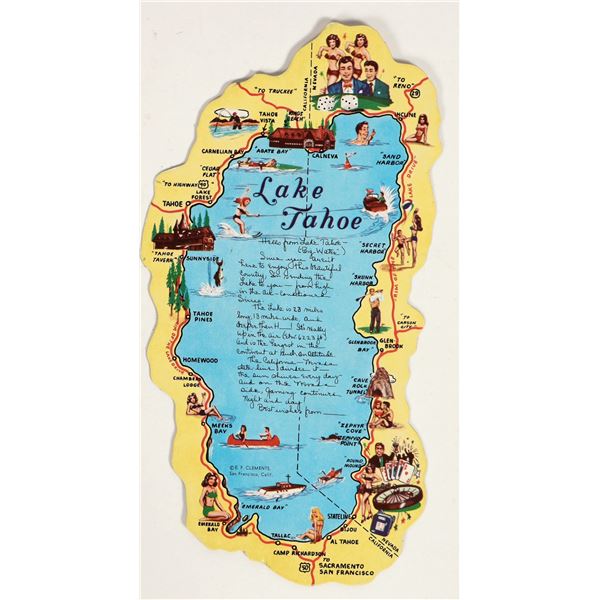 "TO TRUCKEE"
CALIFORNIA
NEVADA
"TO RENO"
TAHOE
VISTA
KINGS
BEACH
INCLINE
CARNELIAN BAY
"AGATE BAY"
CALNEVA
"SAND
HARBOR"
"CEDAR
FLAT"
"TO HIGHWAY" 40
LAKE
FOREST
TAHOE
Lake
Tahoe
LAKE DRIVE
"TAHOE
TAVERN"
SUNNYSIDE
"SECRET
HARBOR"
"SKUNK
HARBOR"
Hello from Lake "Tahoe"
(Big Water)
Since you aren't
here to enjoy this beautiful
country, I'm sending the
Lake to you - from high
in the air-conditioned
Sierras.
The Lake is 23 miles
long, 13 miles wide, and
deeper than H__! It's really
up in the air (elev. 6225 ft)
and is the largest in the
continent at such an altitude.
The California - Nevada
state line divides it -
the sun shines every day
and on the Nevada
side, gaming continues
night and day.
Best wishes from
TAHOE
PINES
"TO
CARSON
CITY"
"GLENBROOK
BAY"
GLEN-
BROOK
HOMEWOOD
CHAMBERS
LODGE
"CAVE
ROCK
TUNNEL"
MEEKS
BAY
"ZEPHYR
COVE"
"ZEPHYR
POINT"
"ROUND
MOUND"
© E. F. CLEMENTS,
San Francisco, Calif.
"EMERALD BAY"
EMERALD
BAY
STATELINE
BIJOU
NEVADA
CALIFORNIA
TALLAC
AL TAHOE
CAMP RICHARDSON
50
TO
SACRAMENTO
SAN FRANCISCO